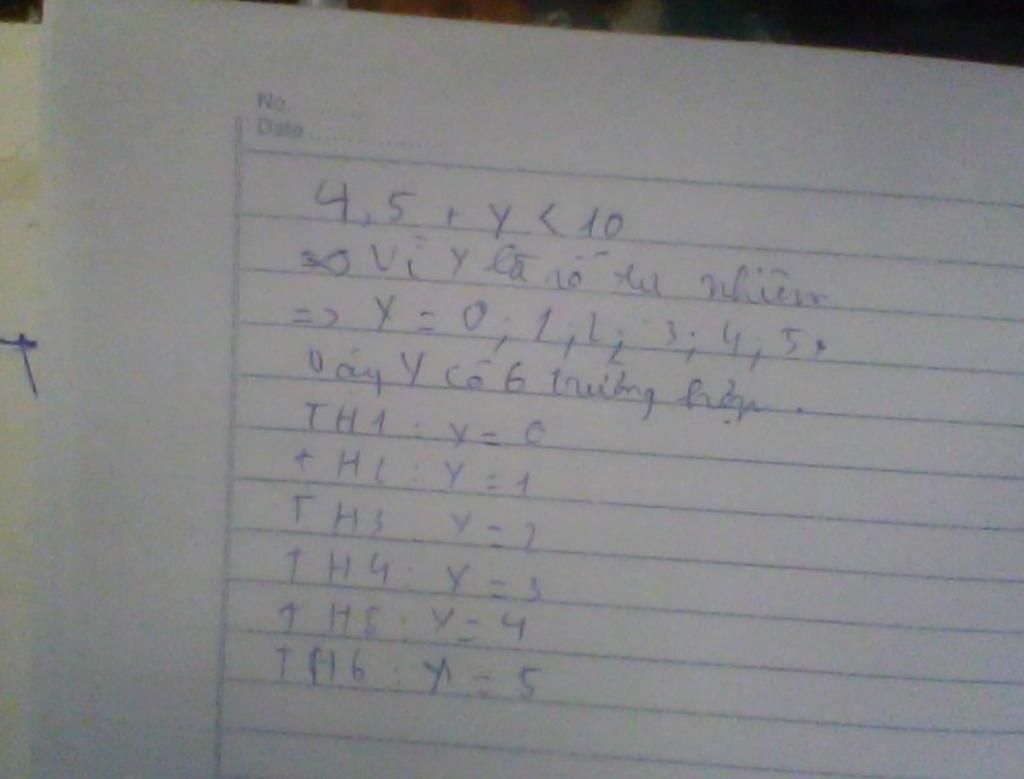 No.
Date
4,5 + Y < 10
Vì Y là số tự nhiên
=> Y = 0; 1; 2; 3; 4; 5.
Vậy Y có 6 trường hợp.
TH1: Y = 0
TH2: Y = 1
TH3 Y = 2
TH4: Y = 3
TH5: Y = 4
TH6: Y = 5